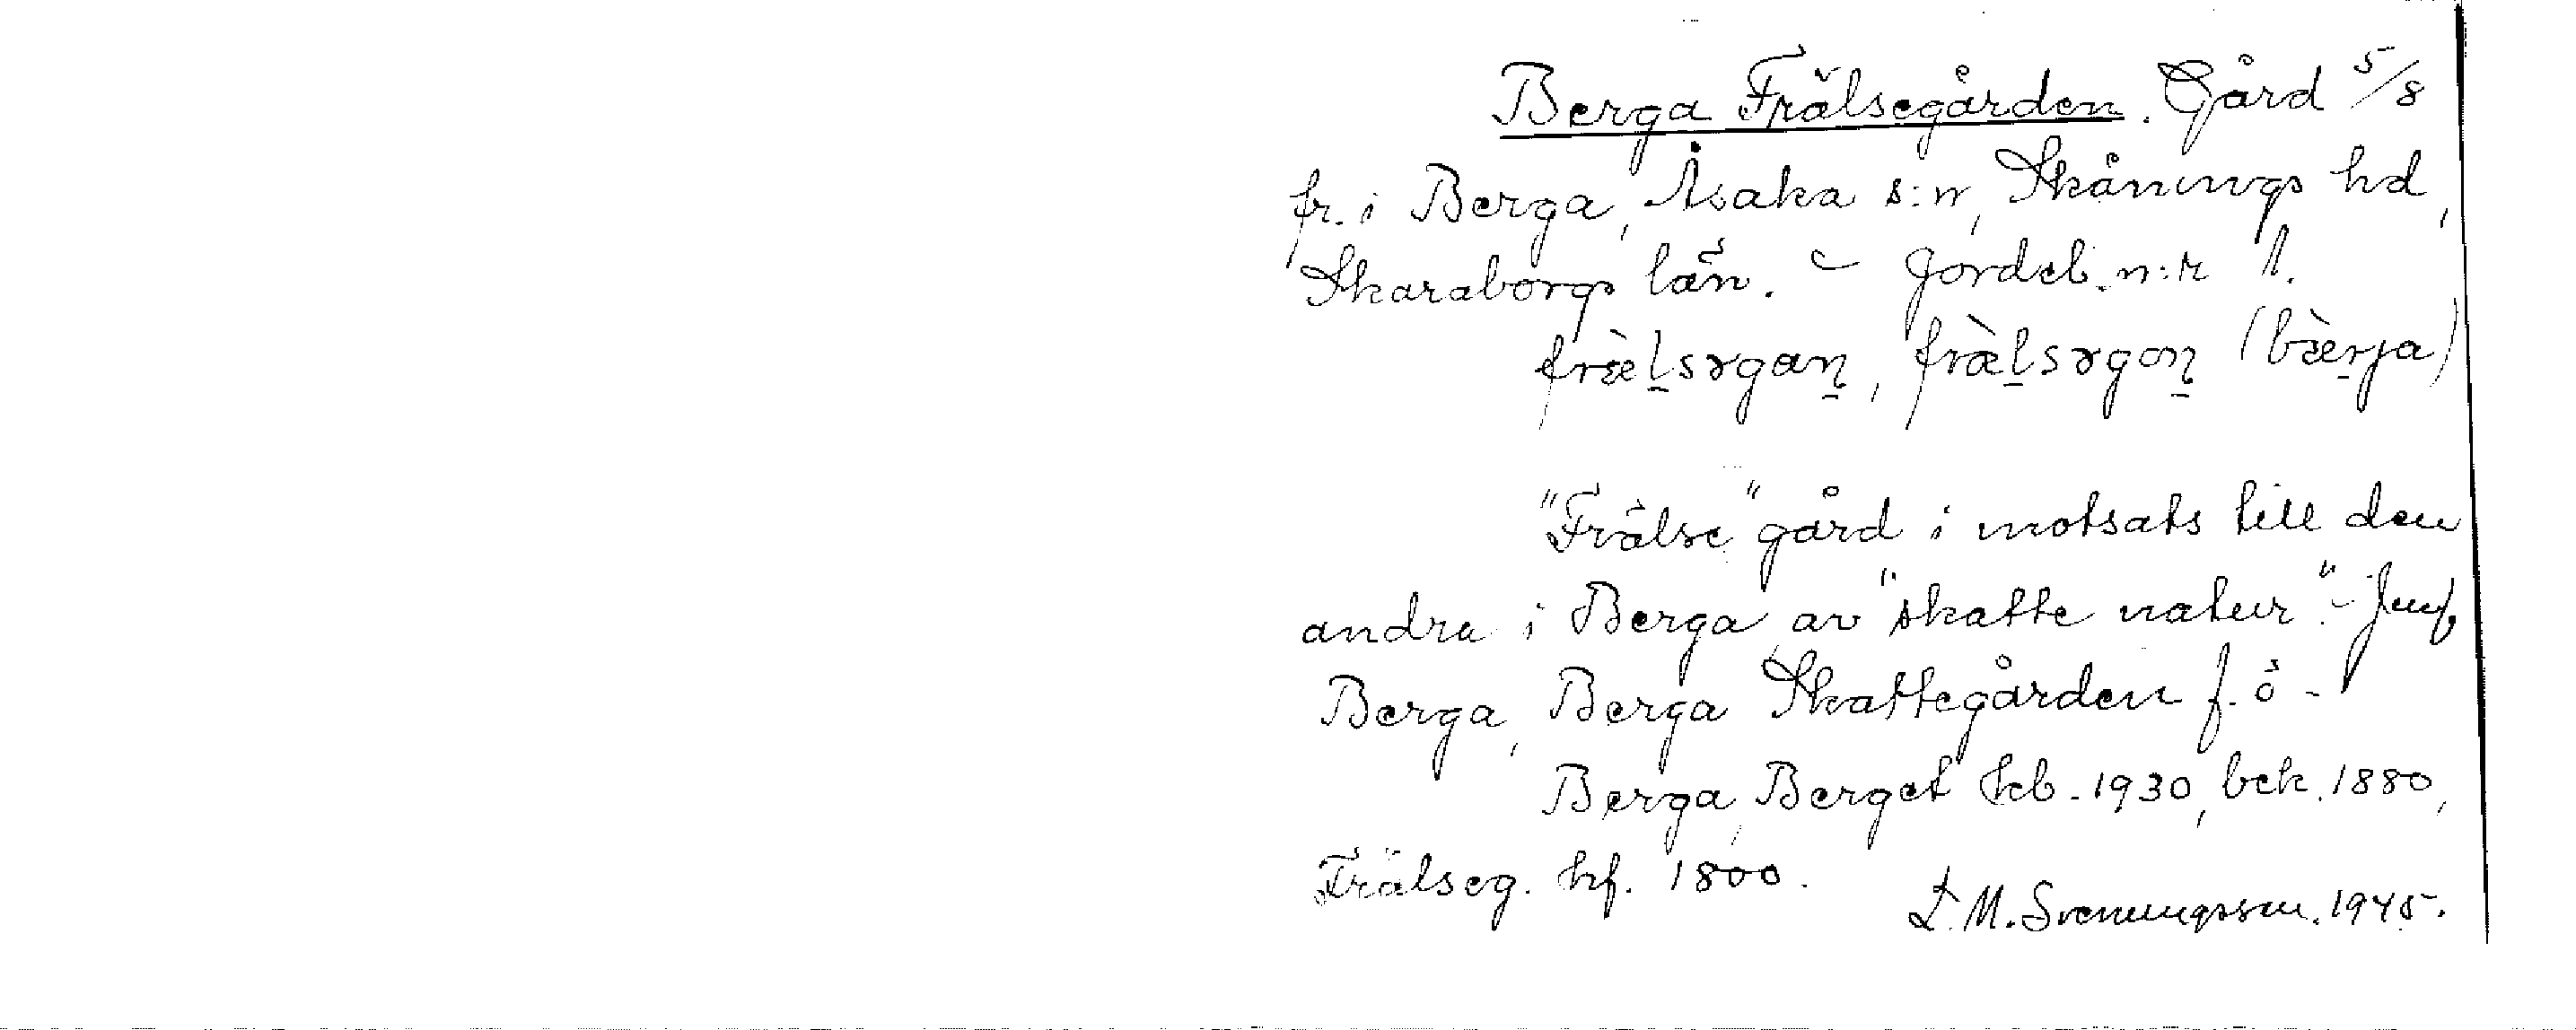 Berga Frälsegården. Gård 5/8
fr. i Berga, Åsaka s:n, Skånings hd,
Skaraborgs län. - Jordeb. n:r 1.
fræ̀l̠sɤgan̠, fræ̀l̠sɤgon̠ (bæ̀rja)
"Frälse" gård i motsats till den
andra i Berga av "skatte natur". - Jmf
Berga, Berga Skattegården f. ö -
Berga, Berget kb. 1930, bek. 1880,
Frälseg. hf. 1800.
L. M. Svenungsson. 1945.